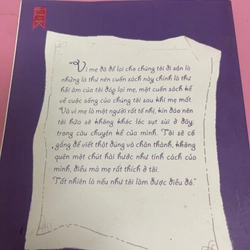 "Vì mẹ đã để lại cho chúng tôi di sản là
những lá thư nên cuốn sách này chính là thư
hồi âm của tôi đáp lại mẹ, một cuốn sách kể
về cuộc sống của chúng tôi sau khi mẹ mất.
Và vì mẹ là một người rất tế nhị, kín đáo nên
tôi hứa sẽ không khóc lóc sụt sùi ở đây,
trong câu chuyện kể của mình. Tôi sẽ cố
gắng để viết thật đúng và chân thành, không
quên một chút hài hước như tính cách của
mình, điều mà mẹ rất thích ở tôi.
Tất nhiên là nếu như tôi làm được điều đó."